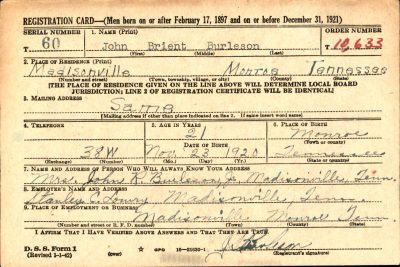 REGISTRATION CARD—(Men born on or after February 17, 1897 and on or before December 31, 1921)
SERIAL NUMBER 1. NAME (Print) ORDER NUMBER
T 60 John Brient Burleson T 10,633
(First) (Middle) (Last)
2. PLACE OF RESIDENCE (Print)
Madisonville Monroe Tennessee
(Number and street) (Town, township, village, or city) (County) (State)
[THE PLACE OF RESIDENCE GIVEN ON THE LINE ABOVE WILL DETERMINE LOCAL BOARD
JURISDICTION; LINE 2 OF REGISTRATION CERTIFICATE WILL BE IDENTICAL]
3. MAILING ADDRESS
Same
[Mailing address if other than place indicated on line 2. If same insert word same]
4. TELEPHONE 5. AGE IN YEARS 6. PLACE OF BIRTH
21 Monroe
DATE OF BIRTH (Town or county)
38W Nov 23 1920 Tennessee
(Exchange) (Number) (Mo.) (Day) (Yr.) (State or country)
7. NAME AND ADDRESS OF PERSON WHO WILL ALWAYS KNOW YOUR ADDRESS
Mrs. John R. Burleson, Madisonville, Tenn.
8. EMPLOYER'S NAME AND ADDRESS
Stanley E. Lowry, Madisonville, Tenn.
9. PLACE OF EMPLOYMENT OR BUSINESS
Madisonville Monroe Tenn.
(Number and street or R. F. D. number) (Town) (County) (State)
I AFFIRM THAT I HAVE VERIFIED ABOVE ANSWERS AND THAT THEY ARE TRUE.
D. S. S. Form 1
(Revised 1-1-42) (over) GPO Burleson
(Registrant's signature)